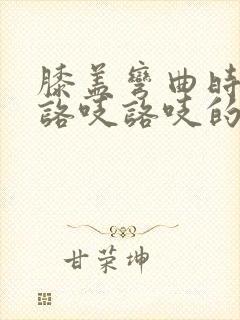 膝盖弯曲时
咯吱咯吱的
甘荣坤